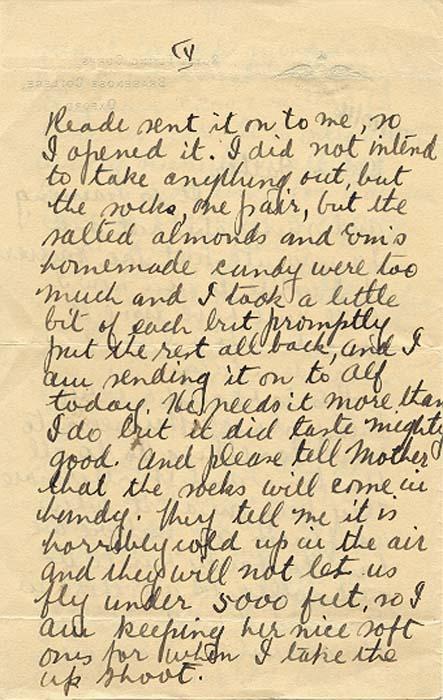 V
Reade sent it on to me, so
I opened it. I did not intend
to take anything out, but
the socks, one pair, but the
salted almonds and Evn's
homemade candy were too
much and I took a little
bit of each but promptly
put the rest all back, and I
am sending it on to Alf
today. He needs it more than
I do but it did taste mighty
good. And please tell Mother
that the socks will come in
handy. They tell me it is
horribly cold up in the air
and they will not let us
fly under 5000 feet, so I
am keeping her nice soft
ones for when I take the
up shoot.